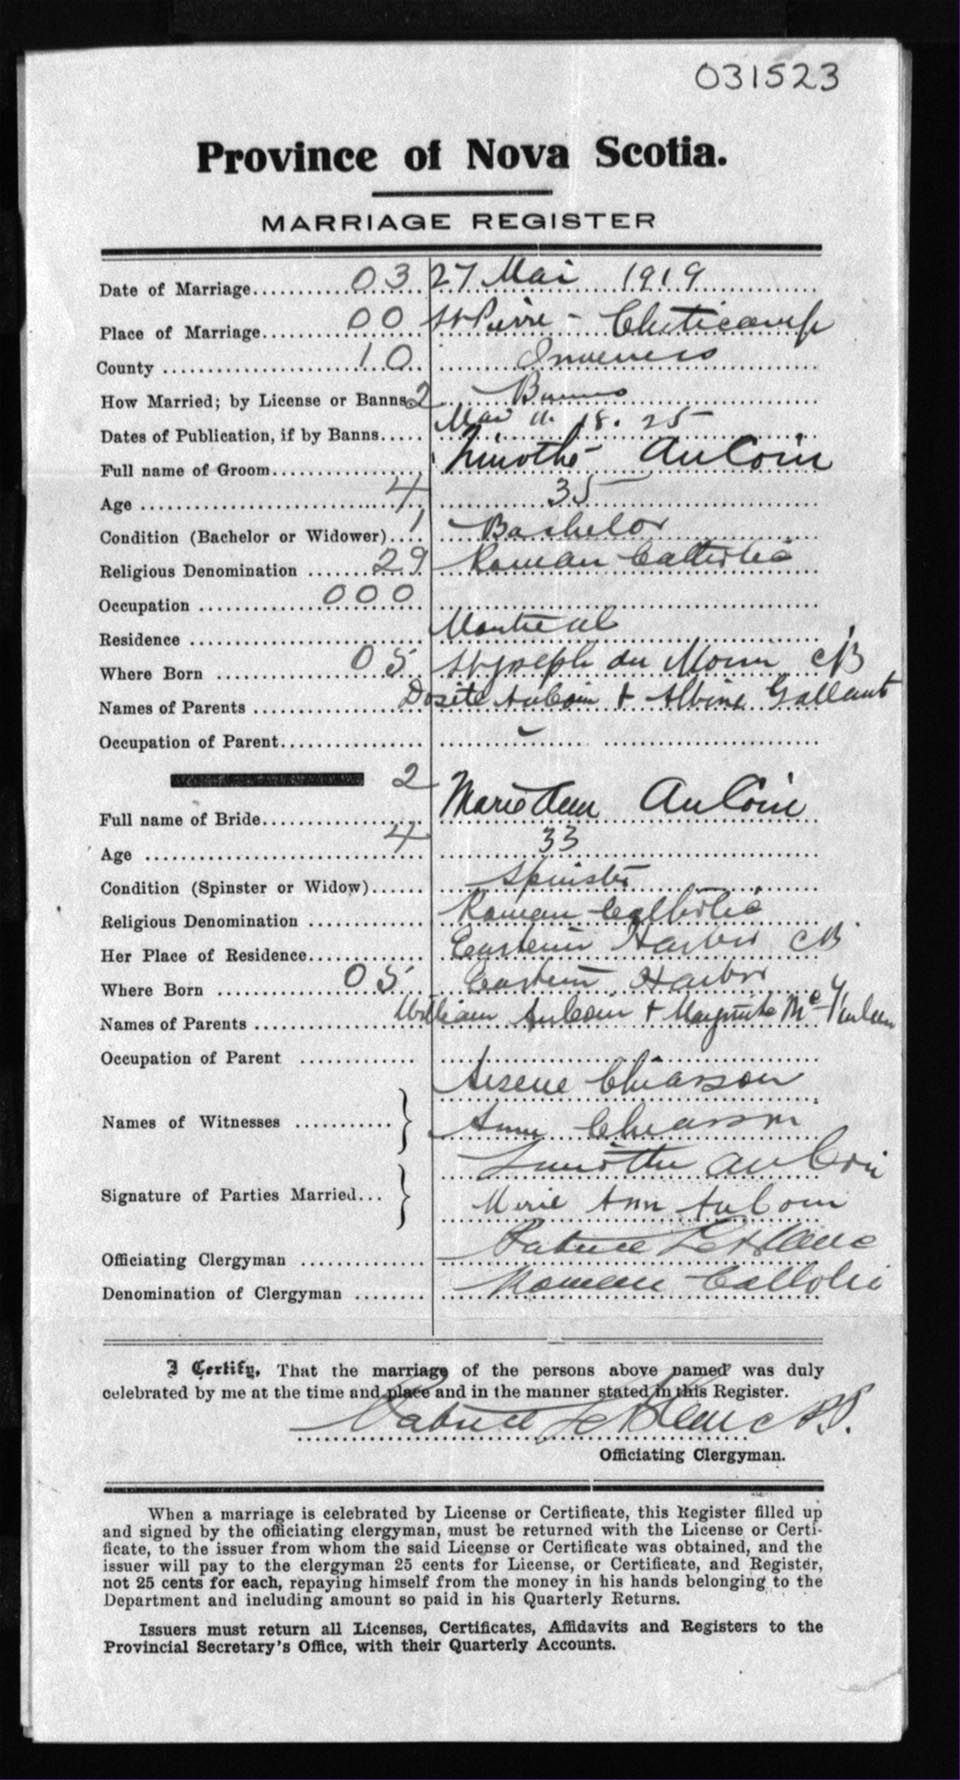 031523
Province of Nova Scotia.
MARRIAGE REGISTER
Date of Marriage.......... 03 27 Mai 1919
Place of Marriage.......... 00 St Pierre - Cheticamp
County .......... 10 Inverness
How Married; by License or Banns. 2 Banns
Dates of Publication, if by Banns..... Mai 11. 18. 25
Full name of Groom.......... Timothé AuCoin
Age .......... 4 35
Condition (Bachelor or Widower).... 1 Bachelor
Religious Denomination ....... 29 Roman Catholic
Occupation .......... 000
Residence .......... Montreal
Where Born .......... 05 St Joseph du Moine CB
Names of Parents .......... Dosite Aucoin + Albine Gallant
Occupation of Parent.......... -
2
Full name of Bride.......... Marie Ann AuCoin
Age .......... 4 33
Condition (Spinster or Widow)...... Spinster
Religious Denomination .......... Roman Catholic
Her Place of Residence.......... Eastern Harbor CB
Where Born .......... 05 Eastern Harbor
Names of Parents .......... William Aucoin + Marguerite Mc
Occupation of Parent ..........
Arsene Chiasson
Names of Witnesses ..........
Anny Chiasson
Timothé AuCoin
Signature of Parties Married...
Marie Ann AuCoin
Officiating Clergyman .......... Patrice LeBlanc
Denomination of Clergyman ........ Roman Catholic
I Certify, That the marriage of the persons above named was duly
celebrated by me at the time and place and in the manner stated in this Register.
Patrice LeBlanc P.P.
Officiating Clergyman.
When a marriage is celebrated by License or Certificate, this Register filled up
and signed by the officiating clergyman, must be returned with the License or Certi-
ficate, to the issuer from whom the said License or Certificate was obtained, and the
issuer will pay to the clergyman 25 cents for License, or Certificate, and Register,
not 25 cents for each, repaying himself from the money in his hands belonging to the
Department and including amount so paid in his Quarterly Returns.
Issuers must return all Licenses, Certificates, Affidavits and Registers to the
Provincial Secretary's Office, with their Quarterly Accounts.